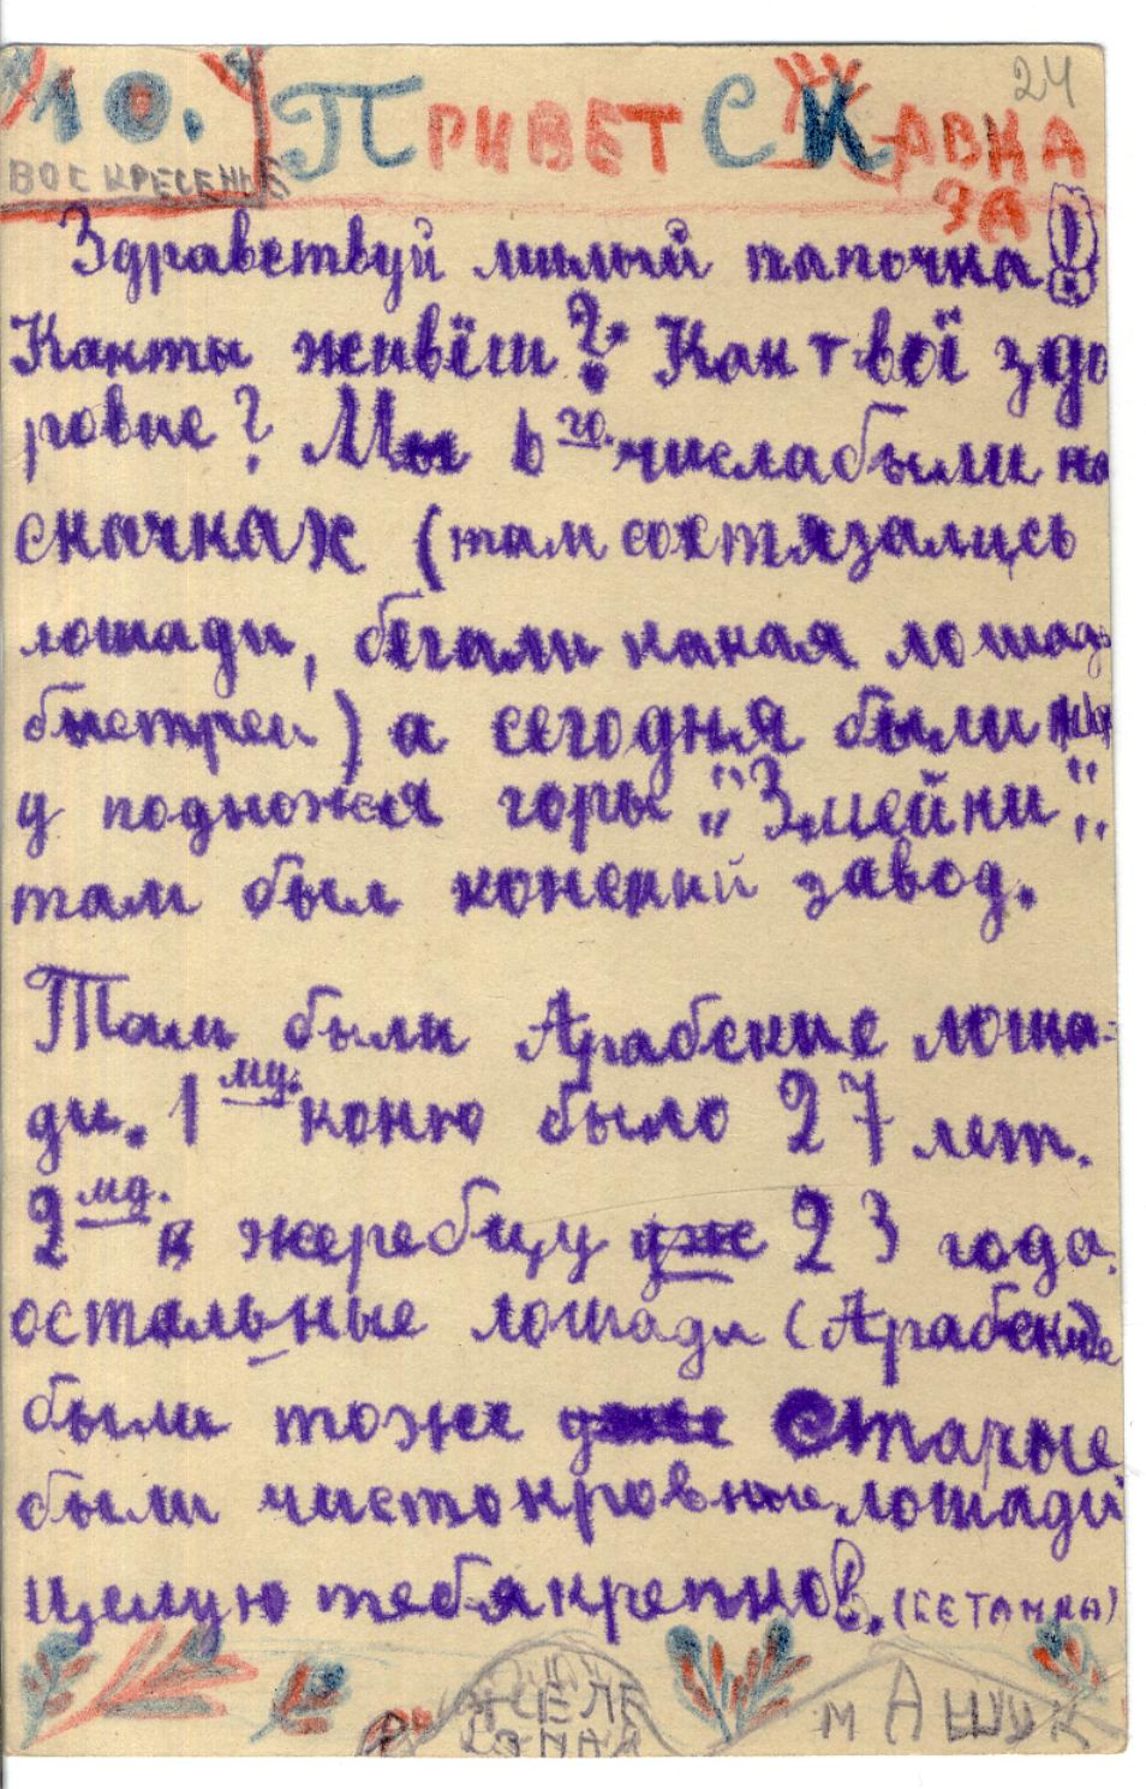 24
10. ПРИВЕТ С КАВКА
ВОСКРЕСЕНЬЕ
ЗА
Здравствуй милый папочка!
Какты живёш? Как твоё здо
ровие? Мы 6го. числабыли на
скачках (там состязались
лошади, бегали какая лошадь
быстрей) а сегодня были
у подножья горы "Змейки".
там был конский завод.
Там были Арабские лоша-
ди. 1му. коню было 27 лет.
2му. жеребцу уже 23 года.
остальные лошади (Арабские
были тоже уже Старые.
были чистокровные лошади
Целую тебякрепков. (СЕТАНКА)
ЖЕЛЕ
ЗНАЯ
МАШУК